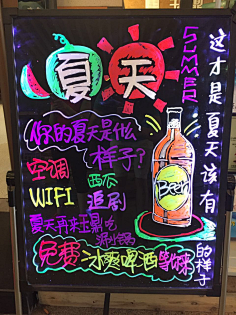 夏天
SUMMER
这才是夏天该有的样子
你的夏天是什么
样子?
空调
西瓜
WIFI
追剧
夏天再来正鼎吃
涮火锅
免费冰爽啤酒等你来
Beer